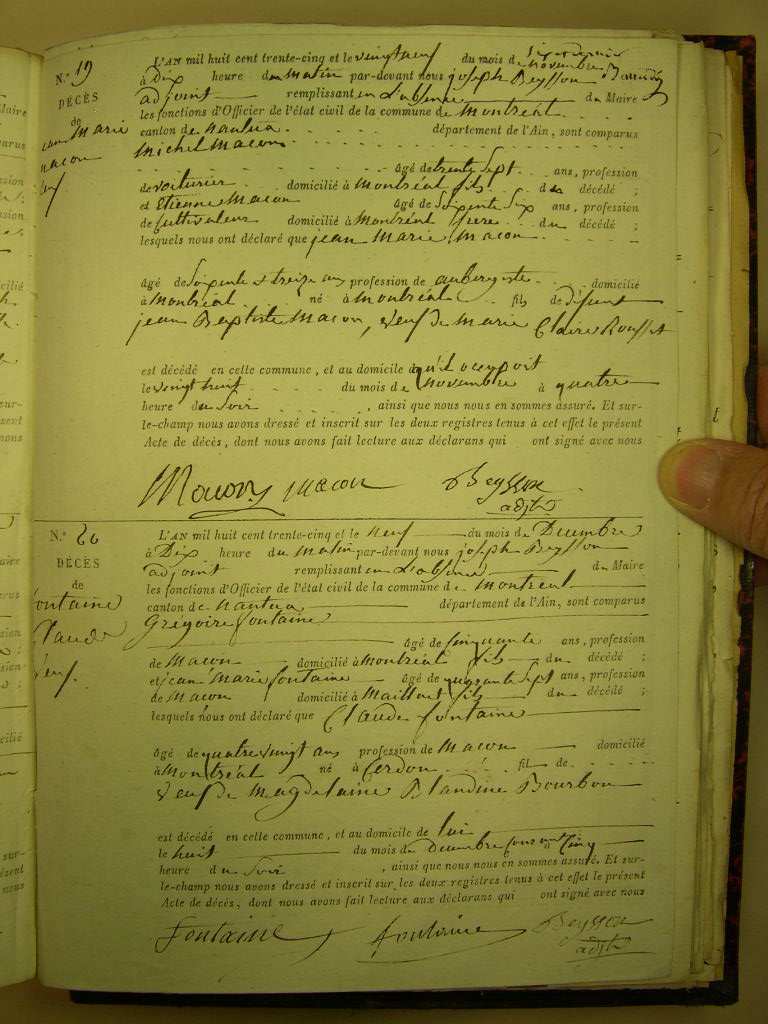 N.º 19
DÉCÈS
de
jean Marie
macon
veuf
L'AN mil huit cent trente-cinq et le vingt neuf du mois de novembre
à Dix heure du Matin par-devant nous joseph Beysson
adjoint remplissant en L'absence du Maire
les fonctions d'Officier de l'état civil de la commune de Montréal
canton de Nantua département de l'Ain, sont comparus
Michel Macon
âgé de trente sept ans, profession
de voiturier domicilié à Montréal fils du décédé ;
et Etienne Macon âgé de Soixente Six ans, profession
de Cultivateur domicilié à Montréal frere du décédé ;
lesquels nous ont déclaré que jean Marie Macon
âgé de Soixente et treize ans profession de aubergiste domicilié
à Montréal né à Montréal fils de défunt
jean Baptiste Macon, veuf de Marie Claire Rousset
est décédé en cette commune, et au domicile qu'il occupoit
le vingt huit du mois de Novembre à quatre
heure du Soir, ainsi que nous nous en sommes assuré. Et sur-
le-champ nous avons dressé et inscrit sur les deux registres tenus à cet effet le présent
Acte de décès, dont nous avons fait lecture aux déclarans qui ont signé avec nous
Macon macon Beysson
adjt
N.º 20
DÉCÈS
de
fontaine
Claude
veuf.
L'AN mil huit cent trente-cinq et le neuf du mois de Decembre
à Dix heure du Matin par-devant nous joseph Beysson
adjoint remplissant en L'absence du Maire
les fonctions d'Officier de l'état civil de la commune de Montreal
canton de Nantua département de l'Ain, sont comparus
Grégoire fontaine
âgé de Cinquante ans, profession
de Macon domicilié à Montréal fils du décédé ;
et jean Marie fontaine âgé de quarante sept ans, profession
de Macon domicilié à Maillat fils du décédé ;
lesquels nous ont déclaré que Claude fontaine
âgé de quatre vingt ans profession de Macon domicilié
à Montréal né à Cerdon fil de
veuf De Magdelaine Blandine Bourbon
est décédé en cette commune, et au domicile de lui
le huit du mois de Decembre courant Cinq
heure du Soir, ainsi que nous nous en sommes assuré. Et sur-
le-champ nous avons dressé et inscrit sur les deux registres tenus à cet effet le présent
Acte de décès, dont nous avons fait lecture aux déclarans qui ont signé avec nous
fontaine fontaine Beysson
adjt